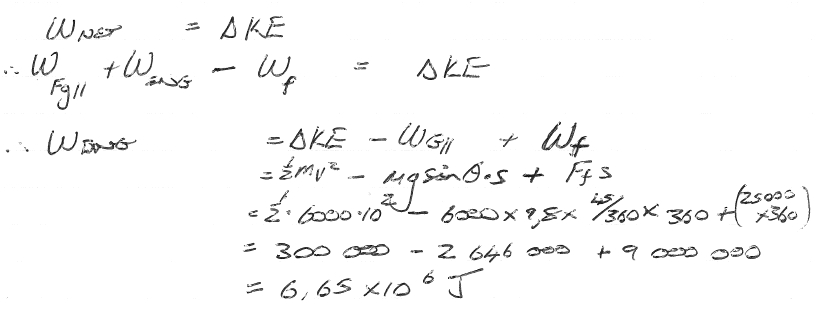 W NET = ΔKE
∴ W Fg|| + W ENG - W f = ΔKE
∴ W ENG = ΔKE - W G|| + W f
= ½mv² - mg sin θ·s + Ff s
= ½·6000·10² - 6000 x 9,8 x 45/360 x 360 + (25000 x 360)
= 300 000 - 2 646 000 + 9 000 000
= 6,65 x10⁶ J